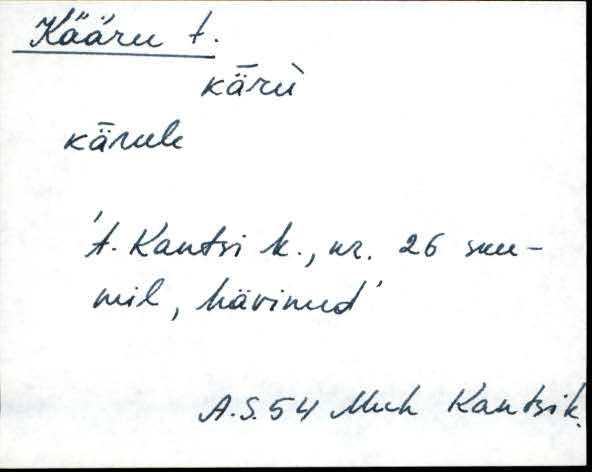 Kääru t.
kǟrù
kǟrule
't. Kantsi k., nr. 26 suu-
mil, hävinud'
A.S. 54 Muh Kantsi k.